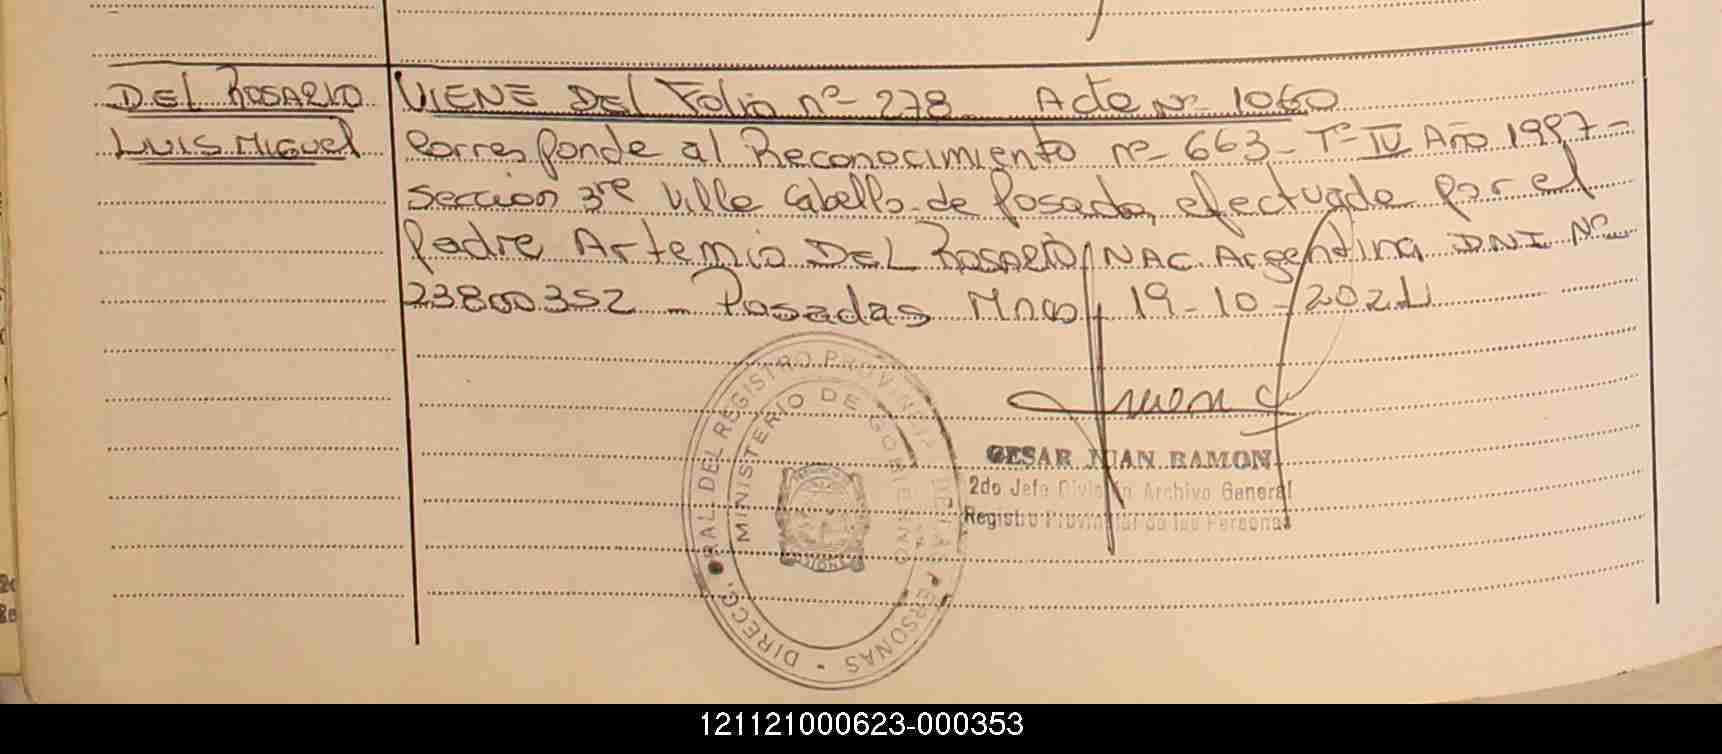 DEL ROSARIO
LUIS MIGUEL
VIENE DEL Folio nº 278 Acta Nº 1060
Corresponde al Reconocimiento nº 663 - Tº IV Año 1997 -
sección 3ra Villa Cabello de Posadas, efectuado por el
Padre Artemio DEL ROSARIO, NAC. Argentina DNI Nº
23800352 - Posadas Mnes, 19 - 10 - 2021
DIRECC. GRAL DEL REGISTRO PROVINCIAL DE LAS PERSONAS
MINISTERIO DE GOBIERNO
CESAR JUAN RAMON
2do Jefe División Archivo General
Registro Provincial de las Personas
121121000623-000353